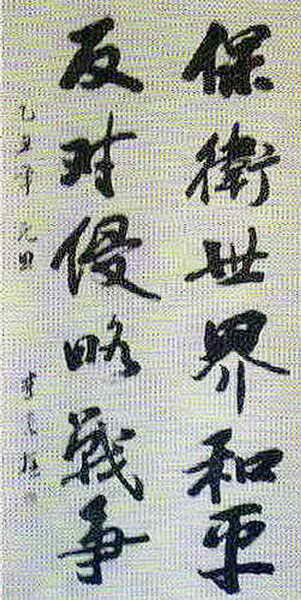 保衛世界和平
反对侵略戰争
乙丑年元旦